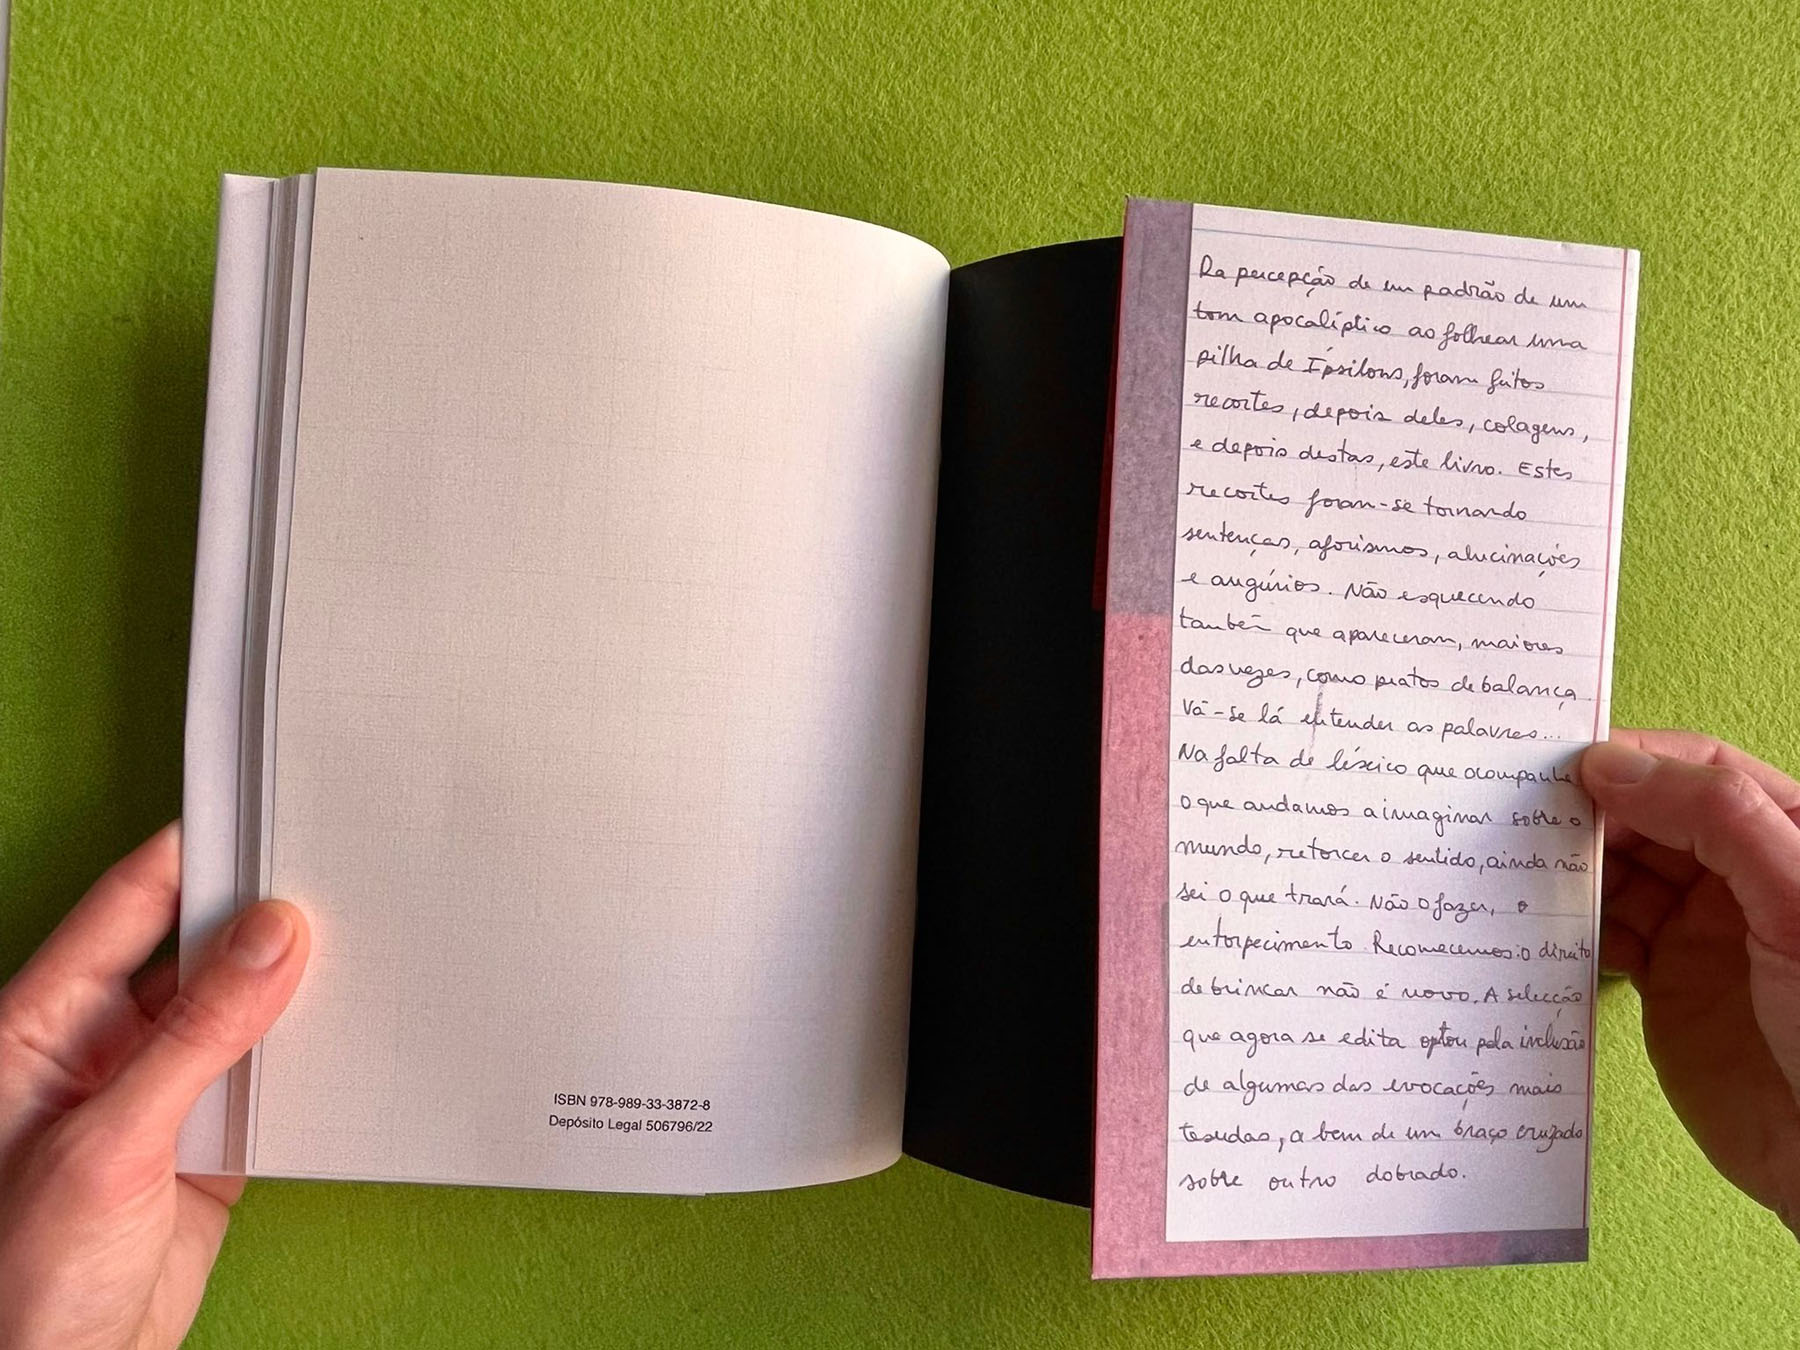 ISBN 978-989-33-3872-8
Depósito Legal 506796/22
Da percepção de um padrão de um
tom apocalíptico ao folhear uma
pilha de Ípsilons, foram feitos
recortes, depois deles, colagens,
e depois destas, este livro. Estes
recortes foram-se tornando
sentenças, aforismos, alucinações
e augúrios. Não esquecendo
também que apareceram, maiores
das vezes, como pratos de balança.
Vá-se lá entender as palavras...
Na falta de léxico que acompanhe
o que andamos a imaginar sobre o
mundo, retorcer o sentido, ainda não
sei o que trará. Não o fazer, o
entorpecimento. Recomecemos: o direito
de brincar não é novo. A selecção
que agora se edita optou pela inclusão
de algumas das evocações mais
tesudas, a bem de um braço cruzado
sobre outro dobrado.